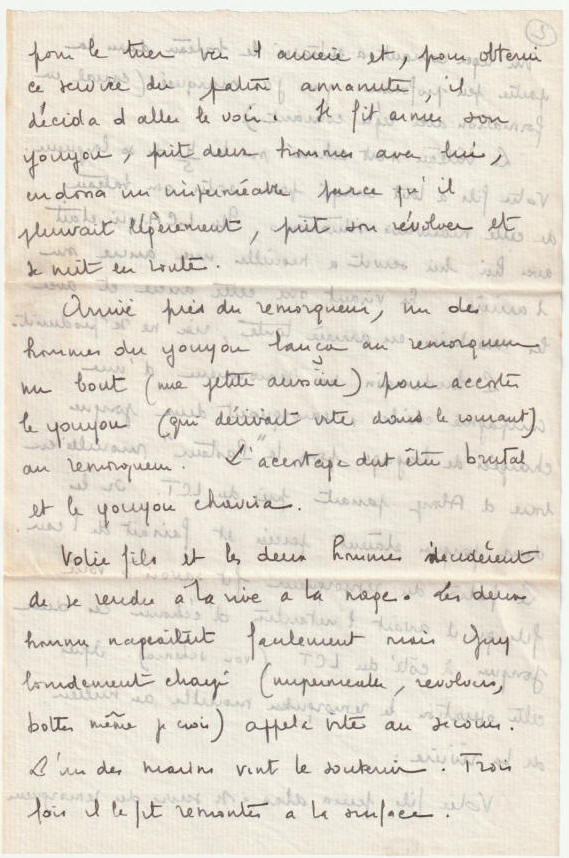 2
pour le tirer vers l'arrière et, pour obtenir
ce service du patron annamite, il
décida d'aller le voir. Il fit armer son
youyou, prit deux hommes avec lui,
endossa un imperméable parce qu'il
pleuvait légèrement, prit son révolver et
se mit en route.
Arrivé près du remorqueur, un des
hommes du youyou lança au remorqueur
un bout (une petite aussière) pour accoster
le youyou (qui dérivait vite dans le courant)
au remorqueur. L'acostage dut être brutal
et le youyou chavira.
Votre fils et les deux hommes décidèrent
de se rendre à la rive à la nage. Les deux
hommes nageaient facilement mais Guy
lourdement chargé (imperméable, revolver,
bottes même je crois) appela vite au secours.
L'un des marins vint le soutenir. Trois
fois il le fit remonter à la surface.